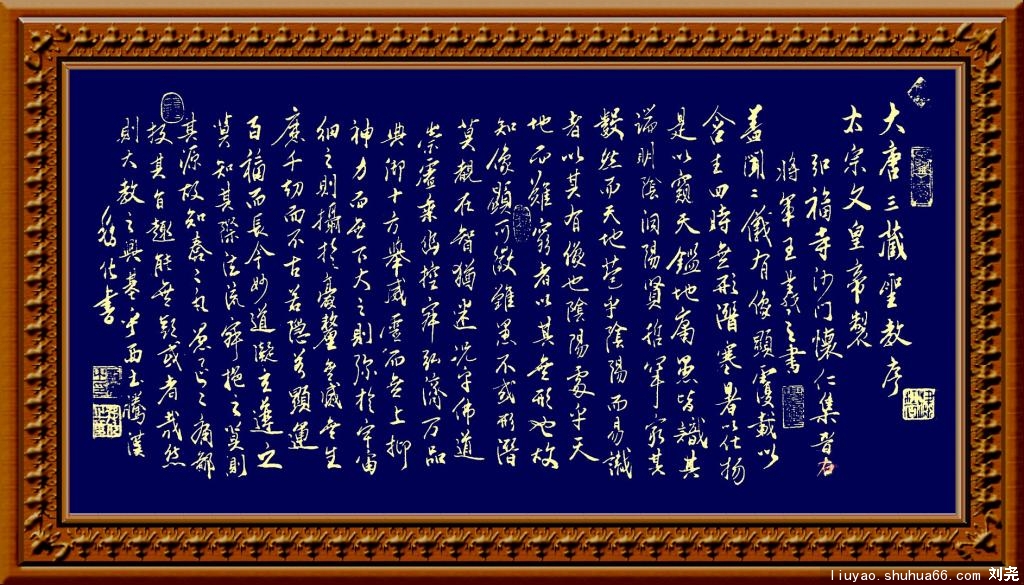 大唐三藏聖教序
太宗文皇帝製
弘福寺沙门懷仁集晋右
將軍王羲之書
蓋聞二儀有像顯覆載以
含生四時無形潛寒暑以化物
是以窺天鑑地庸愚皆識其
端明陰洞陽賢哲罕窮其
數然而天地苞乎陰陽而易識
者以其有像也陰陽處乎天
地而難窮者以其無形也故
知像顯可徵雖愚不惑形潛
莫覩在智猶迷况乎佛道
崇虛乘幽控寂弘濟万品
典御十方舉威靈而無上抑
神力而無下大之則弥於宇宙
細之則攝於毫釐無滅無生
歷千劫而不古若隱若顯運
百福而長今妙道凝玄遵之
莫知其際法流寂挹之莫則
其源故知蠢之凡愚區之庸鄙
投其旨趣能無疑或者哉然
則大教之興基乎西土騰漢
書
liuyao.shuhua66.com 刘尧